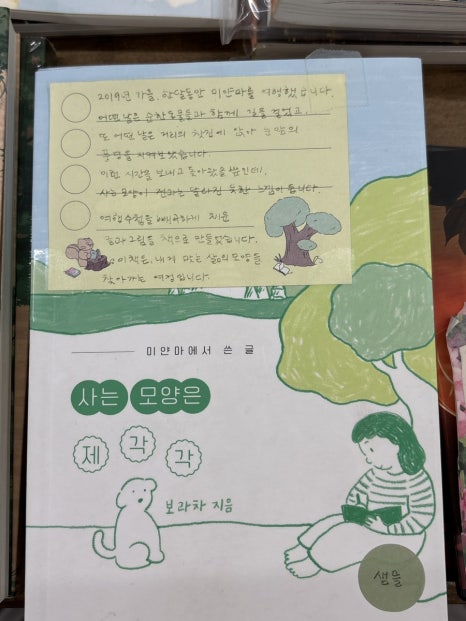 2019년 가을, 한달동안 미얀마를 여행했습니다.
어떤 날은 순한 동물들과 함께 길을 걸었고,
또 어떤 날은 거리의 찻집에 앉아
풍경을 지켜보았습니다
이런 시간을 보내고 돌아왔을 뿐인데,
사는 모양이 전과는 달라진 듯한 느낌이 듭니다.
여행수첩을 빼곡하게 채운
글과 그림을 책으로 만들었습니다.
이 책은, 내게 맞는 삶의 모양을
찾아가는 여정입니다.
미얀마에서 쓴 글
사는 모양은
제각각
보라차 지음
샘플